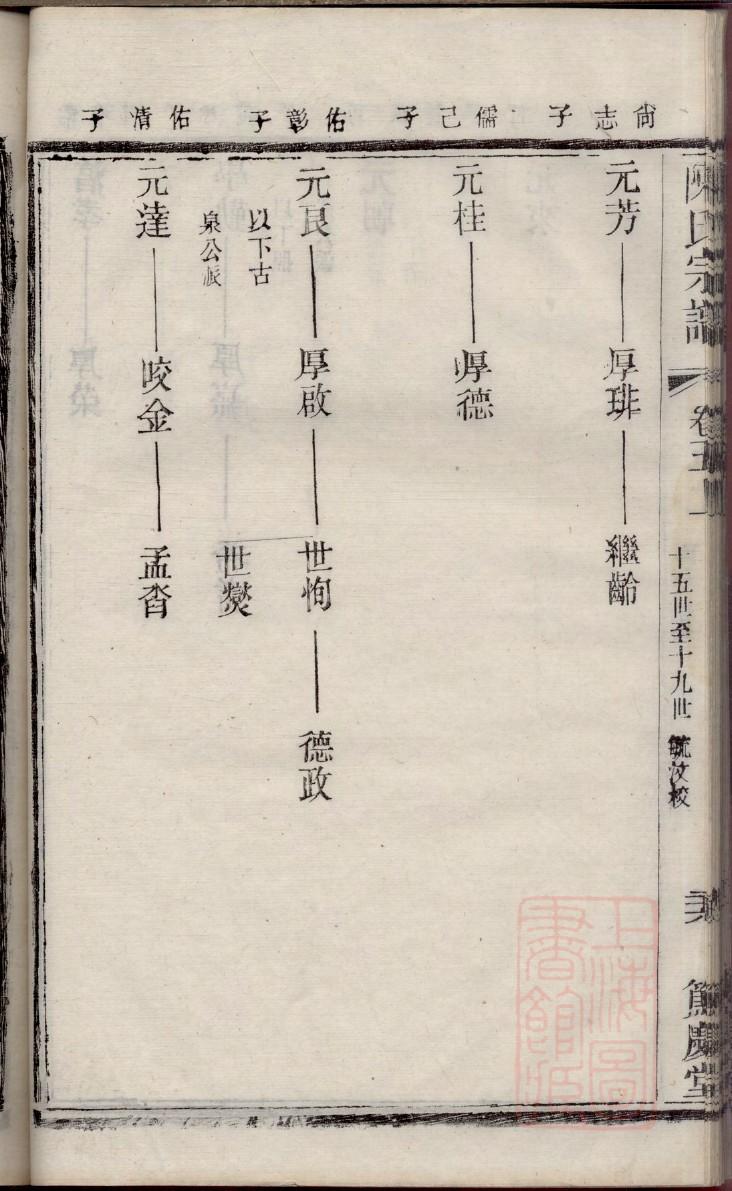 陳氏宗譜 卷五上 十五世至十九世 毓汶校 篤慶堂
尙志子
元芳 厚琲 繼齡
儒己子
元桂 厚德
佑彰子
元良 厚啟 世恂 德政
世爕
以下古
泉公派
佑清子
元達 咬金 孟沓
上海圖
書館藏